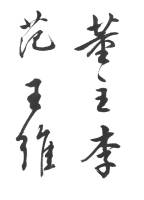 董王李
范王維